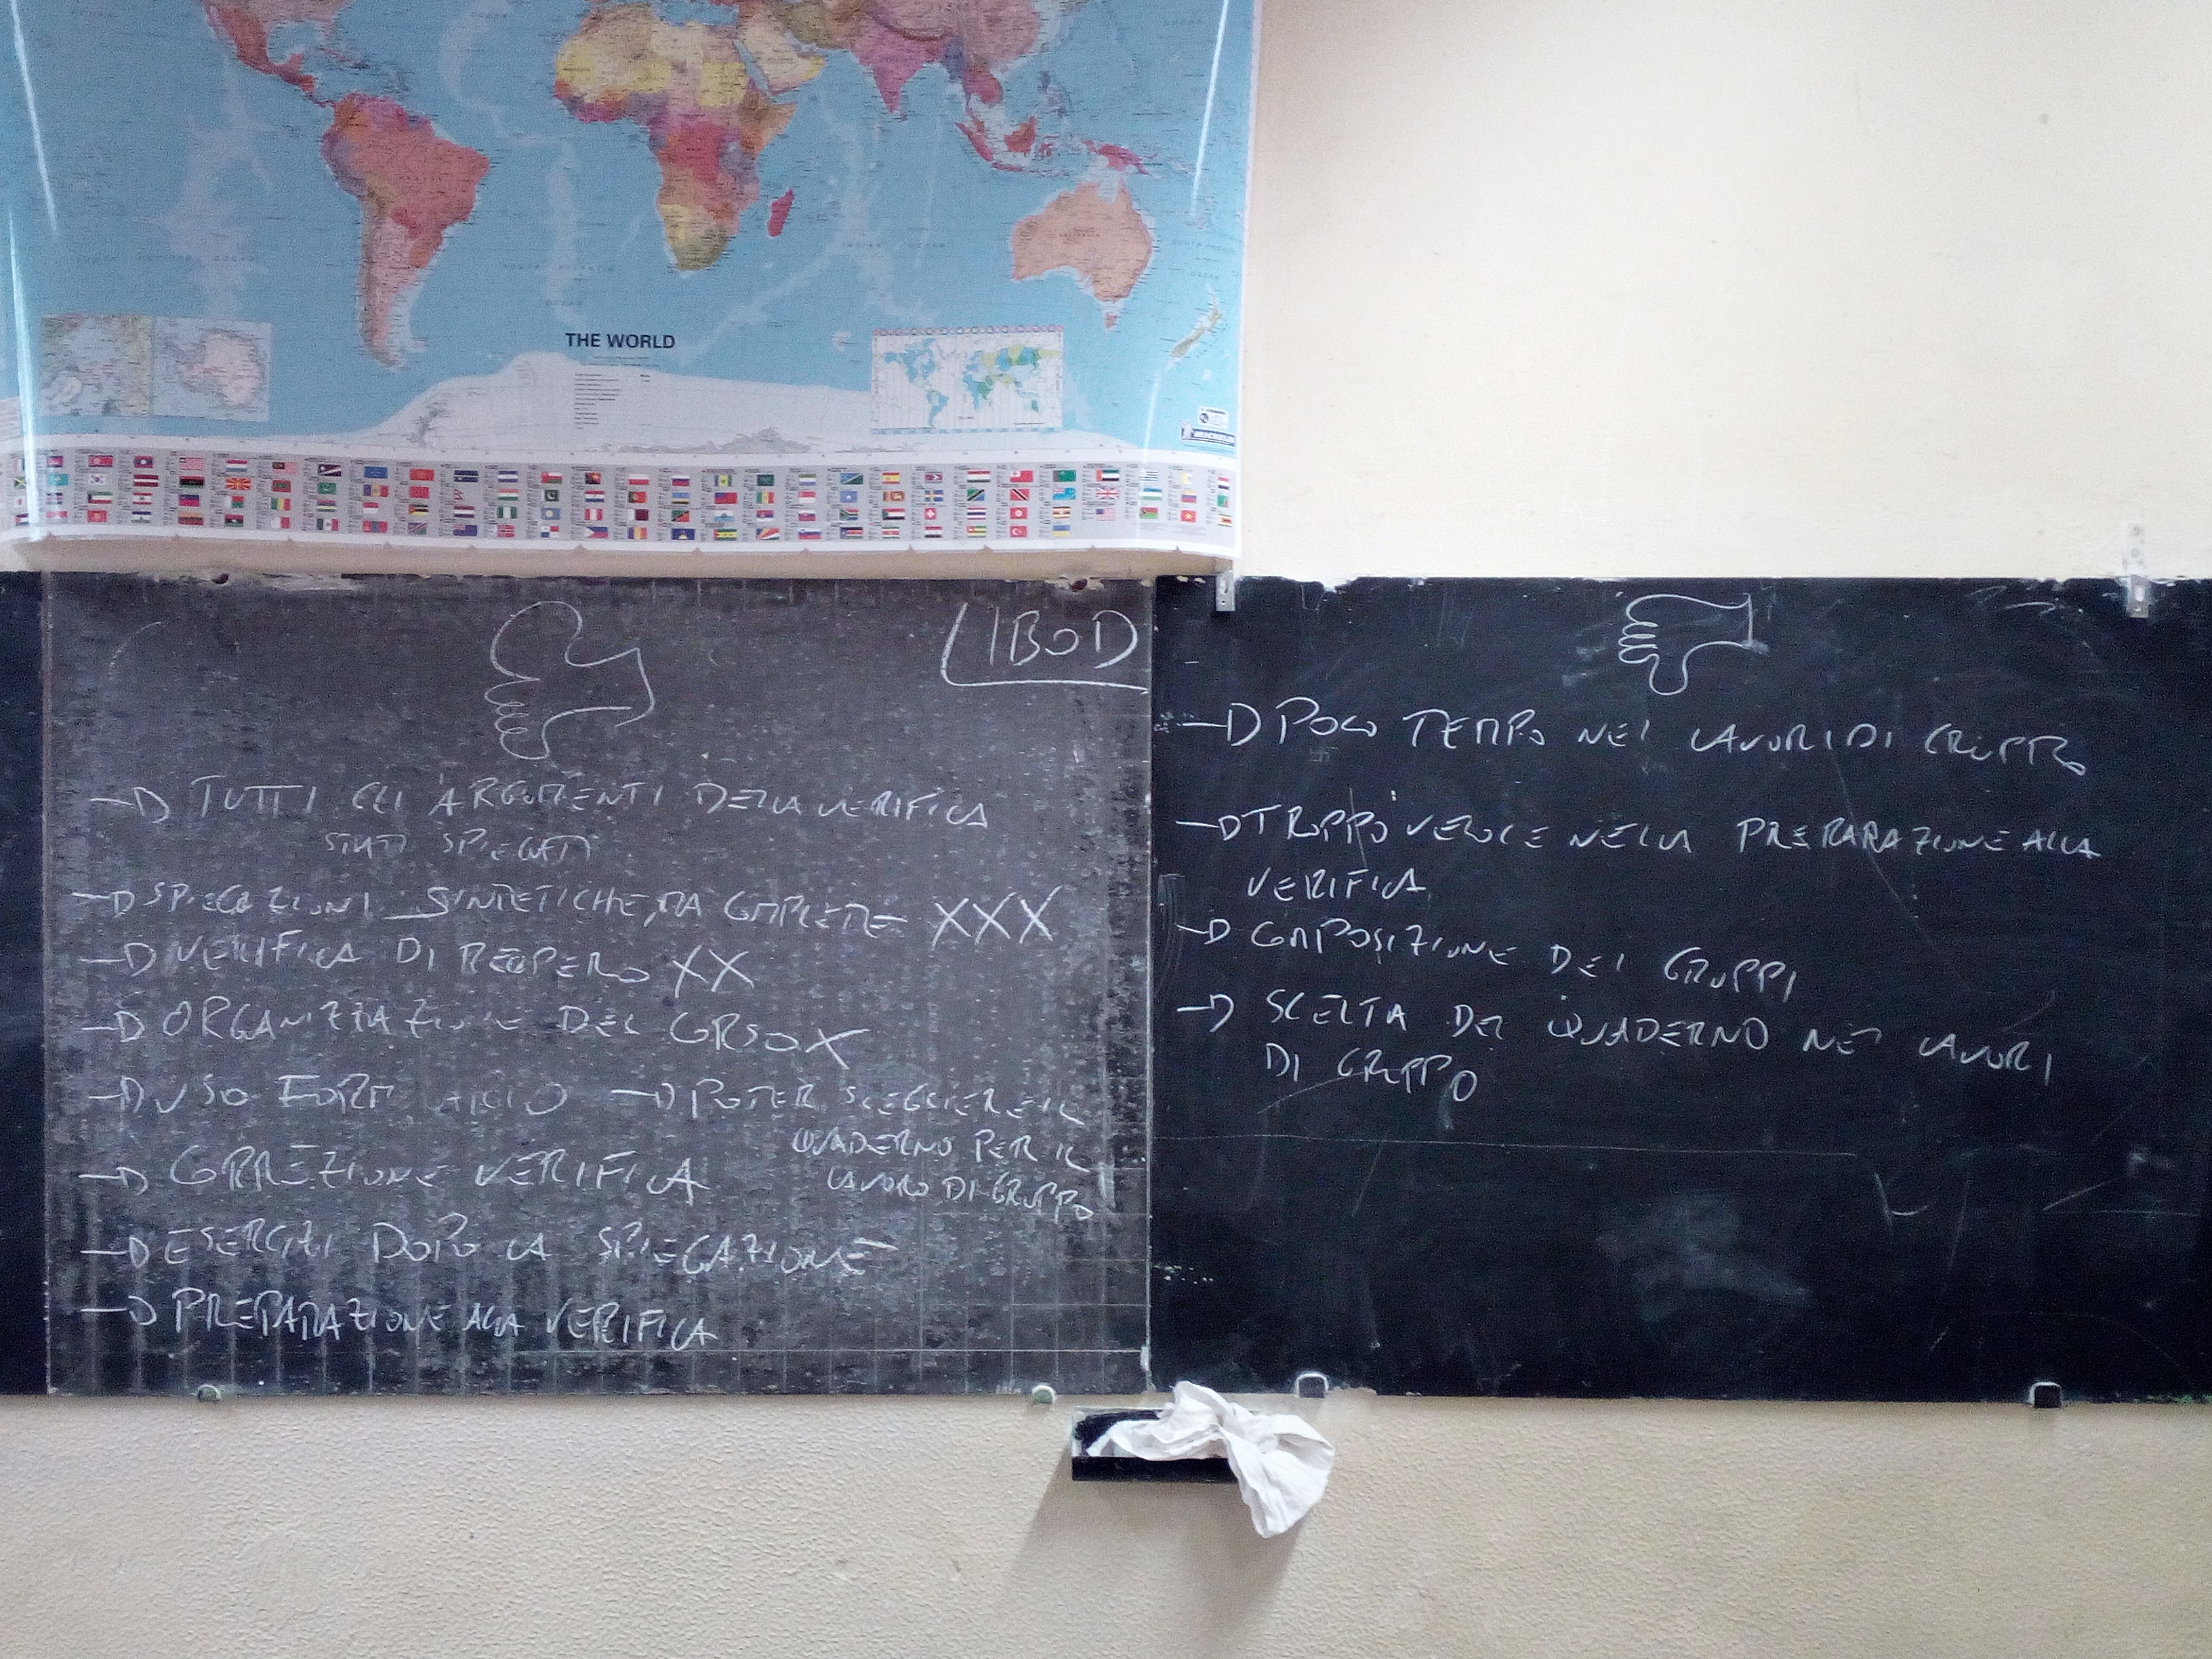 THE WORLD
1BOD
TUTTI GLI ARGOMENTI DELLA VERIFICA
STATI SPIEGATI
SPIEGAZIONI SINTETICHE, MA COMPLETE XXX
VERIFICA DI RECUPERO XX
ORGANIZZAZIONE DEL CORSO X
USO FORMULARIO
POTER SCEGLIERE IL
QUADERNO PER IL
LAVORO DI GRUPPO
CORREZIONE VERIFICA
ESERCIZI DOPO LA SPIEGAZIONE
PREPARAZIONE ALLA VERIFICA
POCO TEMPO NEI LAVORI DI GRUPPO
TROPPO VELOCE NELLA PREPARAZIONE ALLA
VERIFICA
COMPOSIZIONE DEI GRUPPI
SCELTA DEL QUADERNO NEI LAVORI
DI GRUPPO